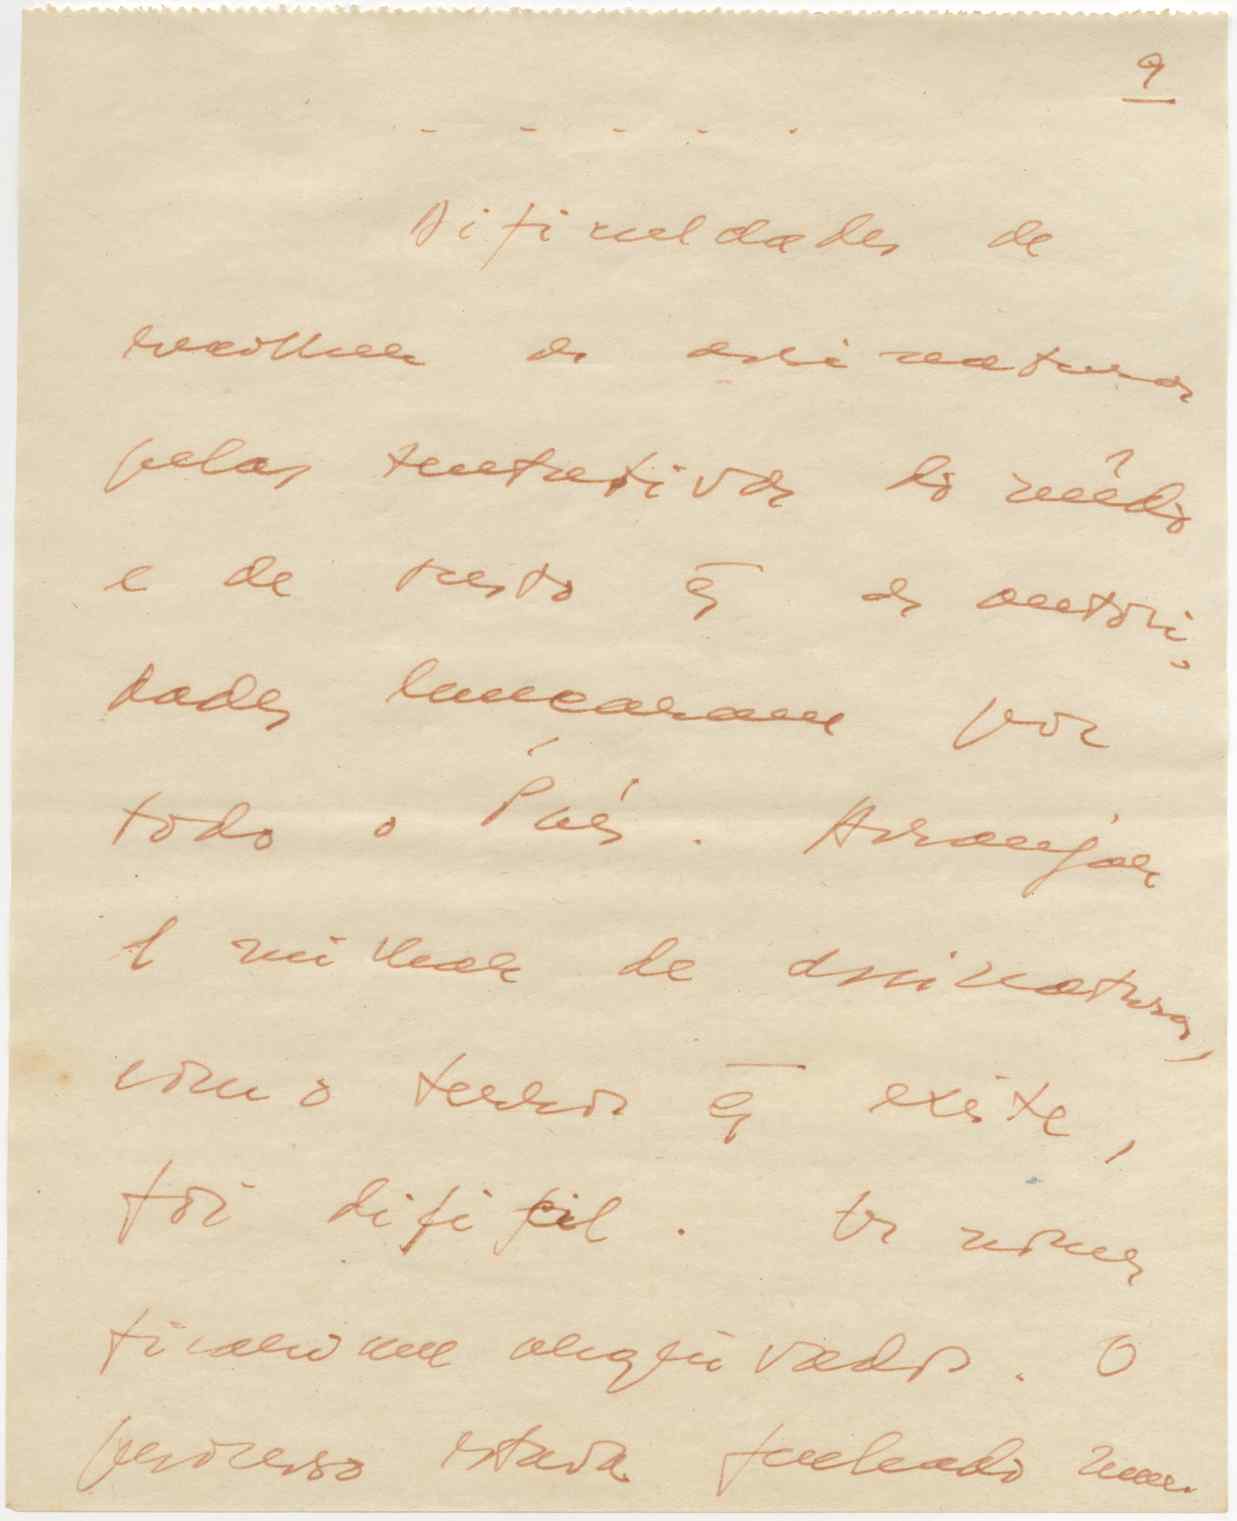 9
- - - - -
Dificuldades de
recolher as assinaturas
pelas tentativas do mêdo
e de resto q̄ as autori-
dades lançaram por
todo o País. Arranjar
1 milhar de assinaturas,
com o terror q̄ existe,
foi difícil. Os nomes
ficaram arquivados. O
processo estava fechado num